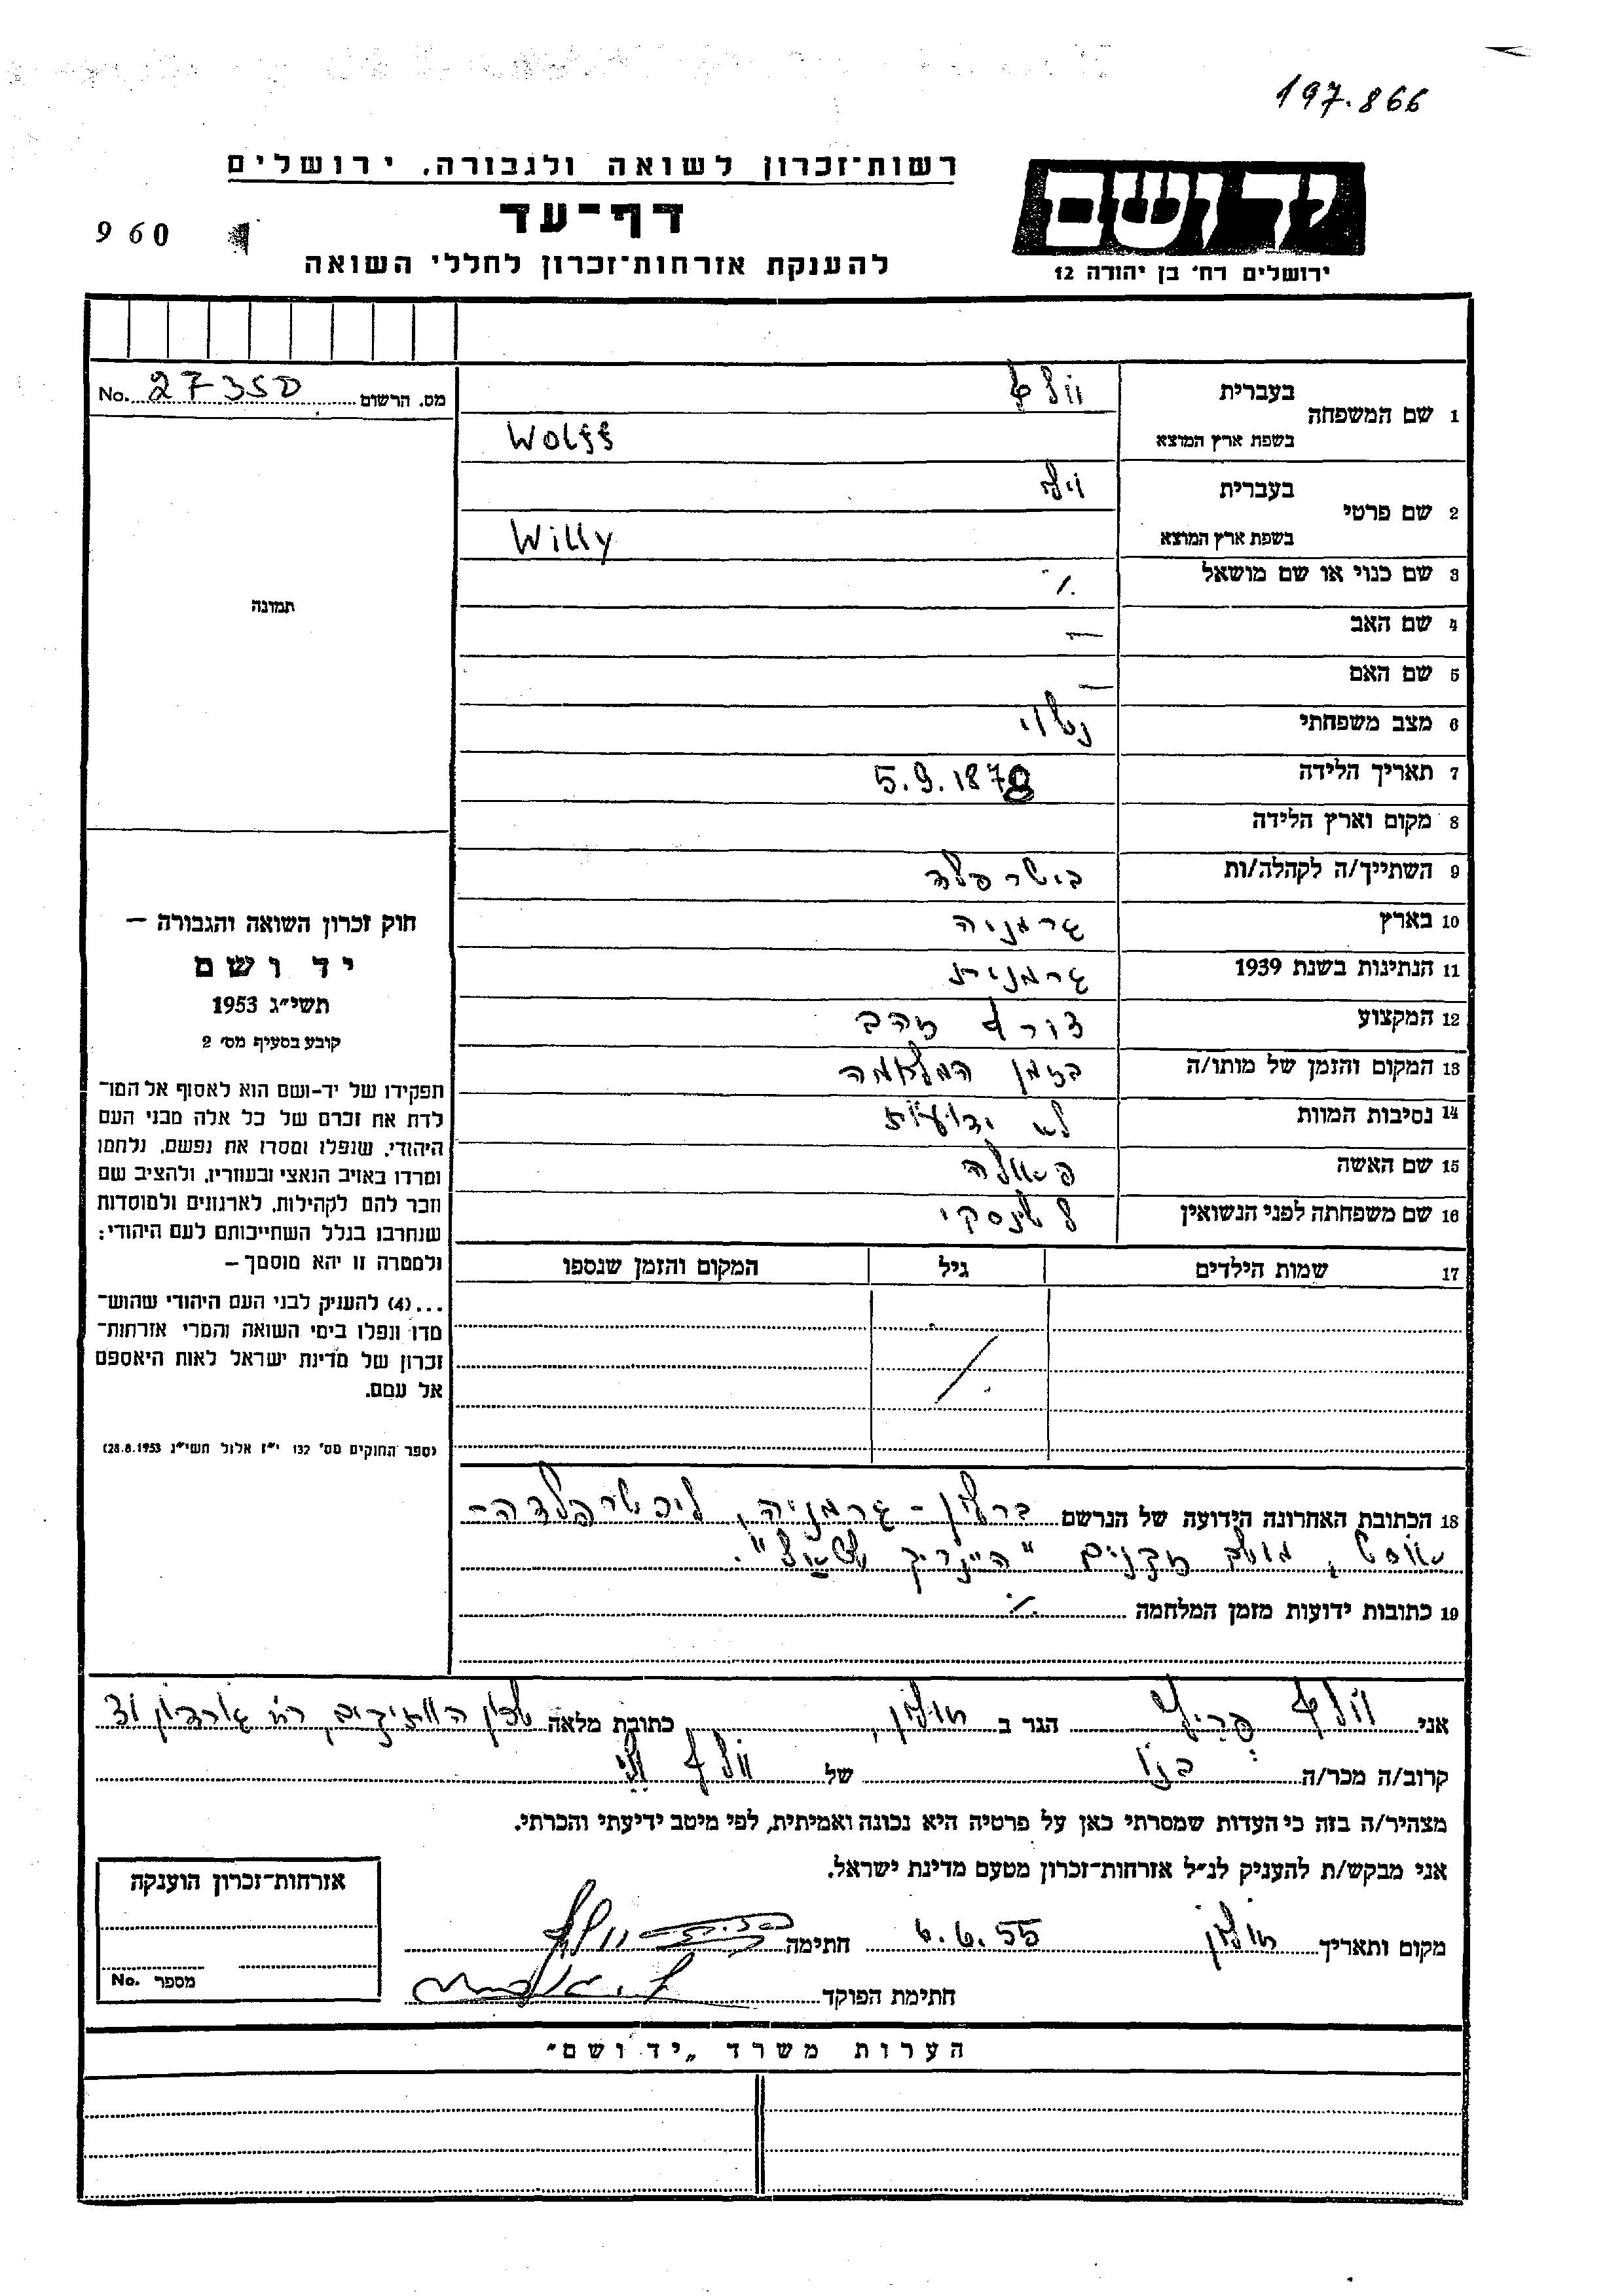 197.866
רשות־זכרון לשואה ולגבורה, ירושלים
יד ושם
דף־עד
960
להענקת אזרחות־זכרון לחללי השואה
ירושלים רח' בן יהודה 12
מס. הרשום 27350 No.
1 שם המשפחה בעברית וולף
בשפת ארץ המוצא Wolff
2 שם פרטי בעברית וילי
בשפת ארץ המוצא Willy
3 שם כנוי או שם מושאל ٪
4 שם האב —
5 שם האם —
6 מצב משפחתי נשוי
7 תאריך הלידה 5.9.1878
8 מקום וארץ הלידה
9 השתייך/ה לקהלה/ות
10 בארץ גרמניה
11 הנתינות בשנת 1939 גרמנית
12 המקצוע צורף זהב
13 המקום והזמן של מותו/ה בזמן המלחמה
14 נסיבות המוות לא ידועות
15 שם האשה פאולה
16 שם משפחתה לפני הנשואין
17 שמות הילדים גיל המקום והזמן שנספו
18 הכתובת האחרונה הידועה של הנרשם ברלין - גרמניה, ליכטרפלדה-
אוסט, מושב זקנים "היינריך שטאל".
19 כתובות ידועות מזמן המלחמה ٪
תמונה
חוק זכרון השואה והגבורה —
יד ושם
תשי"ג 1953
קובע בסעיף מס' 2
תפקידו של יד-ושם הוא לאסוף אל המו־
לדת את זכרם של כל אלה מבני העם
היהודי, שנפלו ומסרו את נפשם, נלחמו
ומרדו באויב הנאצי ובעוזריו, ולהציב שם
וזכר להם לקהילות, לארגונים ולמוסדות
שנחרבו בגלל השתייכותם לעם היהודי:
ולמטרה זו יהא מוסמך —
...(4) להעניק לבני העם היהודי שהוש־
מדו ונפלו בימי השואה והמרי אזרחות־
זכרון של מדינת ישראל לאות היאספם
אל עמם.
(ספר החוקים מס' 132 י"ז אלול תשי"ג 28.8.1953)
אני וולף הגר ב חולון, כתובת מלאה שכון הותיקים, רח'
קרוב/ה מכר/ה בנו של וולף וילי
מצהיר/ה בזה כי העדות שמסרתי כאן על פרטיה היא נכונה ואמיתית, לפי מיטב ידיעתי והכרתי.
אני מבקש/ת להעניק לנ"ל אזרחות־זכרון מטעם מדינת ישראל.
מקום ותאריך חולון 6.6.55 חתימה
חתימת הפוקד
אזרחות־זכרון הוענקה
מספר No.
הערות משרד „יד ושם"